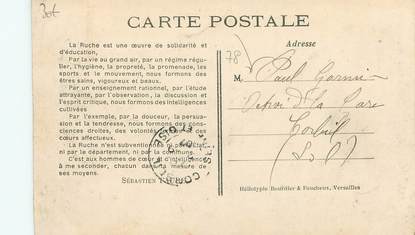 Bot
CARTE POSTALE
La Ruche est une œuvre de solidarité et
d'éducation,
Par la vie au grand air, par un régime régu-
lier, l'hygiène, la propreté, la promenade, les
sports et le mouvement, nous formons des
êtres sains, vigoureux et beaux.
Par un enseignement rationnel, par l'étude
attrayante, par l'observation, la discussion et
l'esprit critique, nous formons des intelligences
cultivées
Par l'exemple, par la douceur, la persua-
sion et la tendresse, nous formons des cons-
ciences droites, des volontés
cœurs affectueux.
La Ruche n'est subventionnée
ni par le département, ni par la commune.
C'est aux hommes de cœur et d'intelligence
à me seconder, chacun dans la mesure de
ses moyens.
Sébastien
Adresse
78
M. Paul Garnier
de la Gare
Corbeil
(S. O)
Héliotypie Bourdier & Faucheux, Versailles